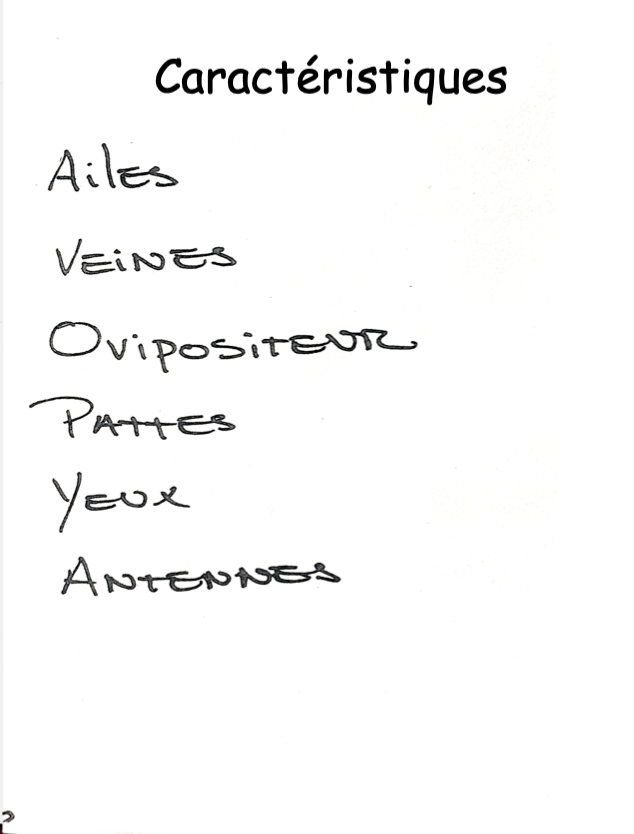 Caractéristiques
Ailes
VEiNES
OvipositEUR
PAttES
YEUX
ANtENNES